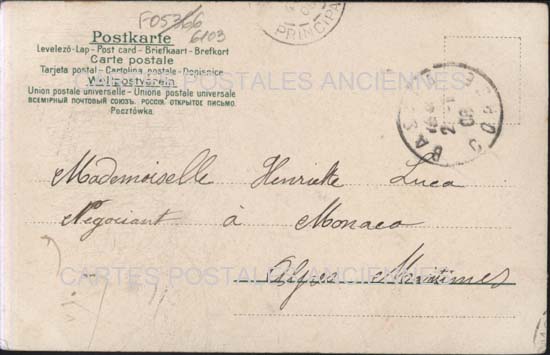 F05366
6103
Postkarte
Levelező-Lap - Post card - Briefkaart - Brefkort
Carte postale
Tarjeta postal - Cartolina postale - Dopisnice
Weltpostverein
Union postale universelle - Unione postale universale
ВСЕМІРНЫЙ ПОЧТОВЫЙ СОЮЗЪ. РОССІЯ. ОТКРЫТОЕ ПИСЬМО.
Pocztówka.
PRINCIPA
CARTES POSTALES ANCIENNES
08
Mademoiselle Henriette Luca
Négociant à Monaco
Alpes Maritimes
CARTES POSTALES ANCIENNES